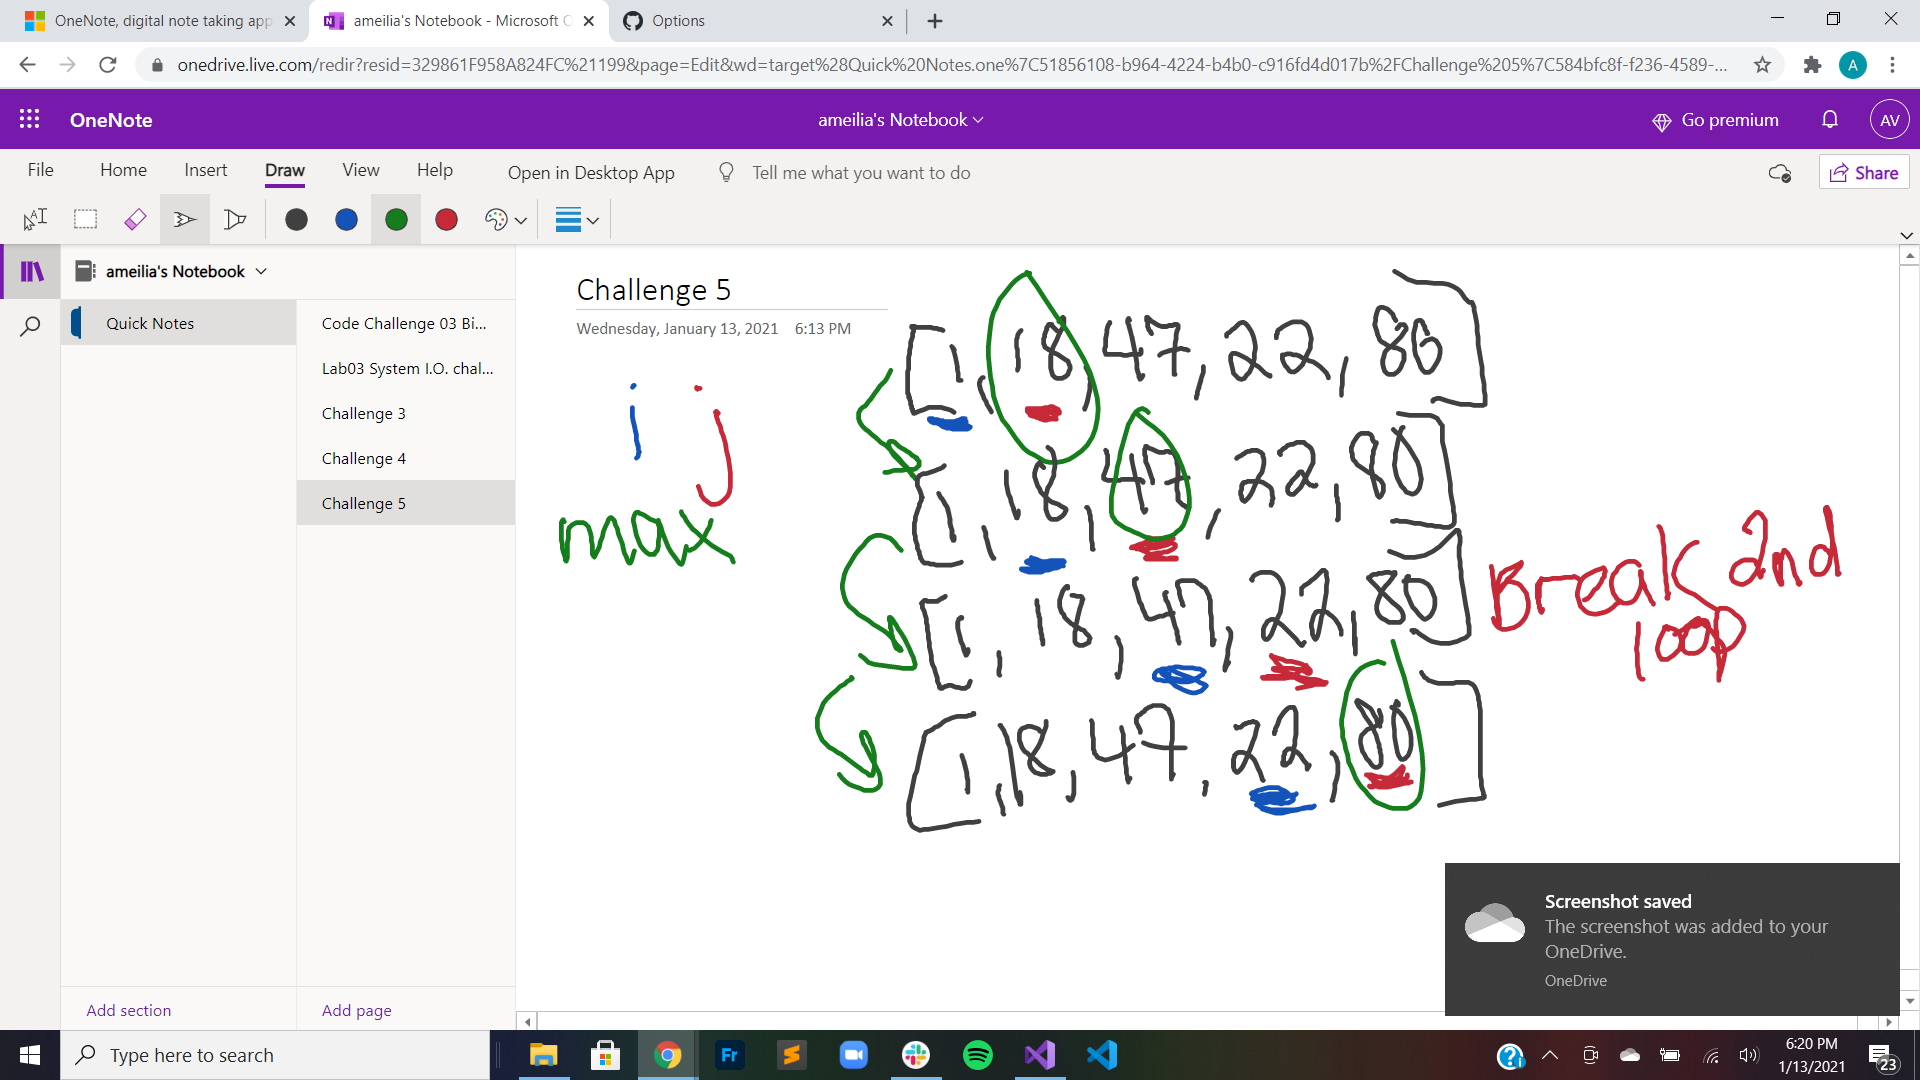 OneNote, digital note taking app
ameilia's Notebook - Microsoft O
Options
onedrive.live.com/redir?resid=329861F958A824FC%21199&page=Edit&wd=target%28Quick%20Notes.one%7C51856108-b964-4224-b4b0-c916fd4d017b%2FChallenge%205%7C584bfc8f-f236-4589-...
A
OneNote
ameilia's Notebook
Go premium
AV
File Home Insert Draw View Help Open in Desktop App Tell me what you want to do
Share
ameilia's Notebook
Quick Notes
Code Challenge 03 Bi...
Lab03 System I.O. chal...
Challenge 3
Challenge 4
Challenge 5
Add section
Add page
Challenge 5
Wednesday, January 13, 2021 6:13 PM
i j
max
[1, 18, 47, 22, 80]
[1, 18, 47, 22, 80]
[1, 18, 47, 22, 80]
[1, 18, 47, 22, 80]
Break 2nd
loop
Screenshot saved
The screenshot was added to your
OneDrive.
OneDrive
Type here to search
Fr
6:20 PM
1/13/2021
23